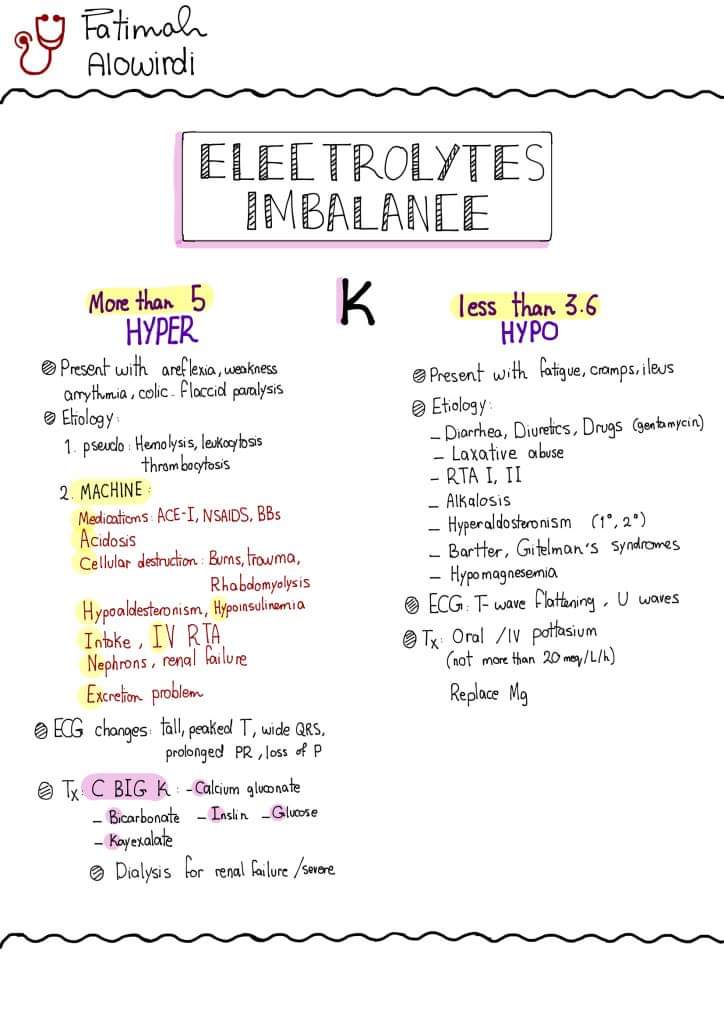 Fatimah
Alowirdi
ELECTROLYTES
IMBALANCE
K
More than 5
HYPER
Present with areflexia, weakness
arrythmia, colic. Flaccid paralysis
Etiology:
1. pseudo: Hemolysis, leukocytosis
thrombocytosis
2. MACHINE:
Medications: ACE-I, NSAIDS, BBs
Acidosis
Cellular destruction: Burns, trauma,
Rhabdomyolysis
Hypoaldesteronism, Hypoinsulinemia
Intake, IV RTA
Nephrons, renal failure
Excretion problem
ECG changes: tall, peaked T, wide QRS,
prolonged PR, loss of P
Tx: C BIG K: - Calcium gluconate
- Bicarbonate - Inslin - Glucose
- Kayexalate
Dialysis for renal failure /severe
less than 3.6
HYPO
Present with fatigue, cramps, ileus
Etiology:
- Diarrhea, Diuretics, Drugs (gentamycin)
- Laxative abuse
- RTA I, II
- Alkalosis
- Hyperaldosteronism (1°, 2°)
- Bartter, Gitelman's syndromes
- Hypomagnesemia
ECG: T-wave flattening, U waves
Tx: Oral /IV pottasium
(not more than 20 meq/L/h)
Replace Mg